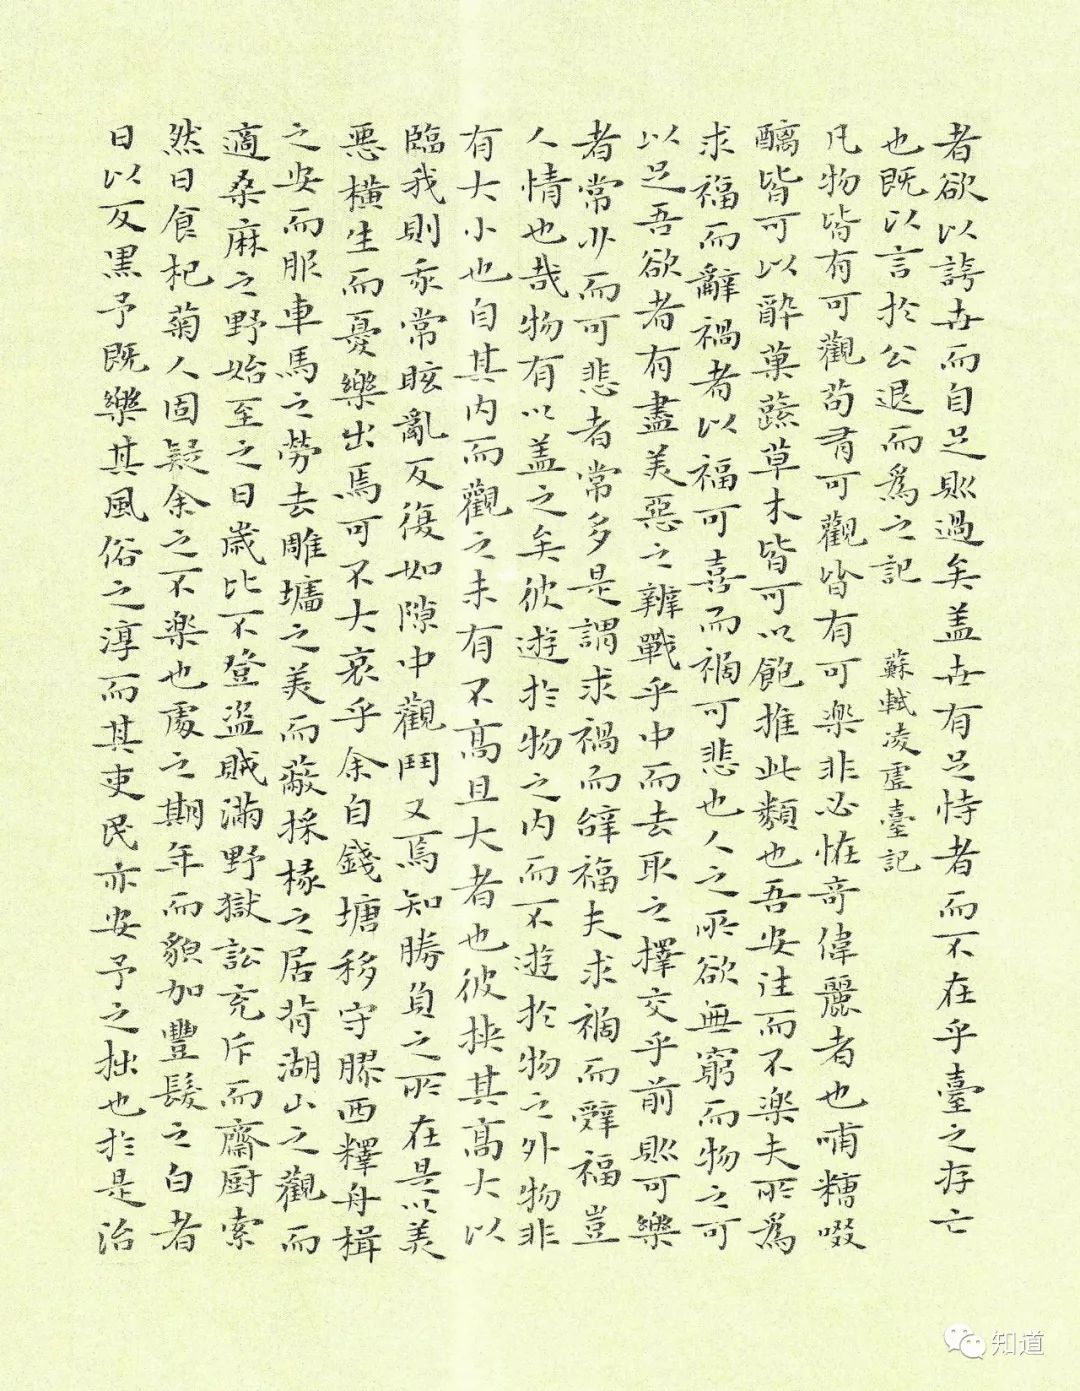 者欲以誇世而自足則過矣盖世有足恃者而不在乎臺之存亡
也既以言於公退而為之記　蘇軾凌虛臺記
凡物皆有可觀苟有可觀皆有可楽非必恠奇偉麗者也哺糟啜
醨皆可以醉菓蔬草木皆可以飽推此類也吾安往而不楽夫所為
求福而辭禍者以福可喜而禍可悲也人之所欲無窮而物之可
以足吾欲者有盡美惡之辨戰乎中而去取之擇交乎前則可樂
者常少而可悲者常多是謂求禍而辞福夫求禍而辭福豈
人情也哉物有以盖之矣彼遊於物之内而不遊於物之外物非
有大小也自其内而觀之未有不高且大者也彼挾其高大以
臨我則我常眩亂反復如隙中觀鬥又焉知勝負之所在是以美
悪橫生而憂樂出焉可不大哀乎余自錢塘移守膠西釋舟楫
之安而服車馬之勞去雕墻之美而蔽採椽之居背湖山之觀而
適桑麻之野始至之日歲比不登盗賊滿野獄訟充斥而齋厨索
然日食杞菊人固疑余之不楽也處之期年而貌加豐髮之白者
日以反黒予既樂其風俗之淳而其吏民亦安予之拙也於是治
知道